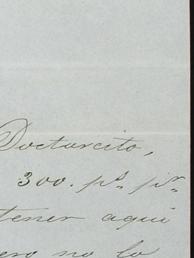 Doctorcito,
300. p.s p.r
tener aqui
ero no lo